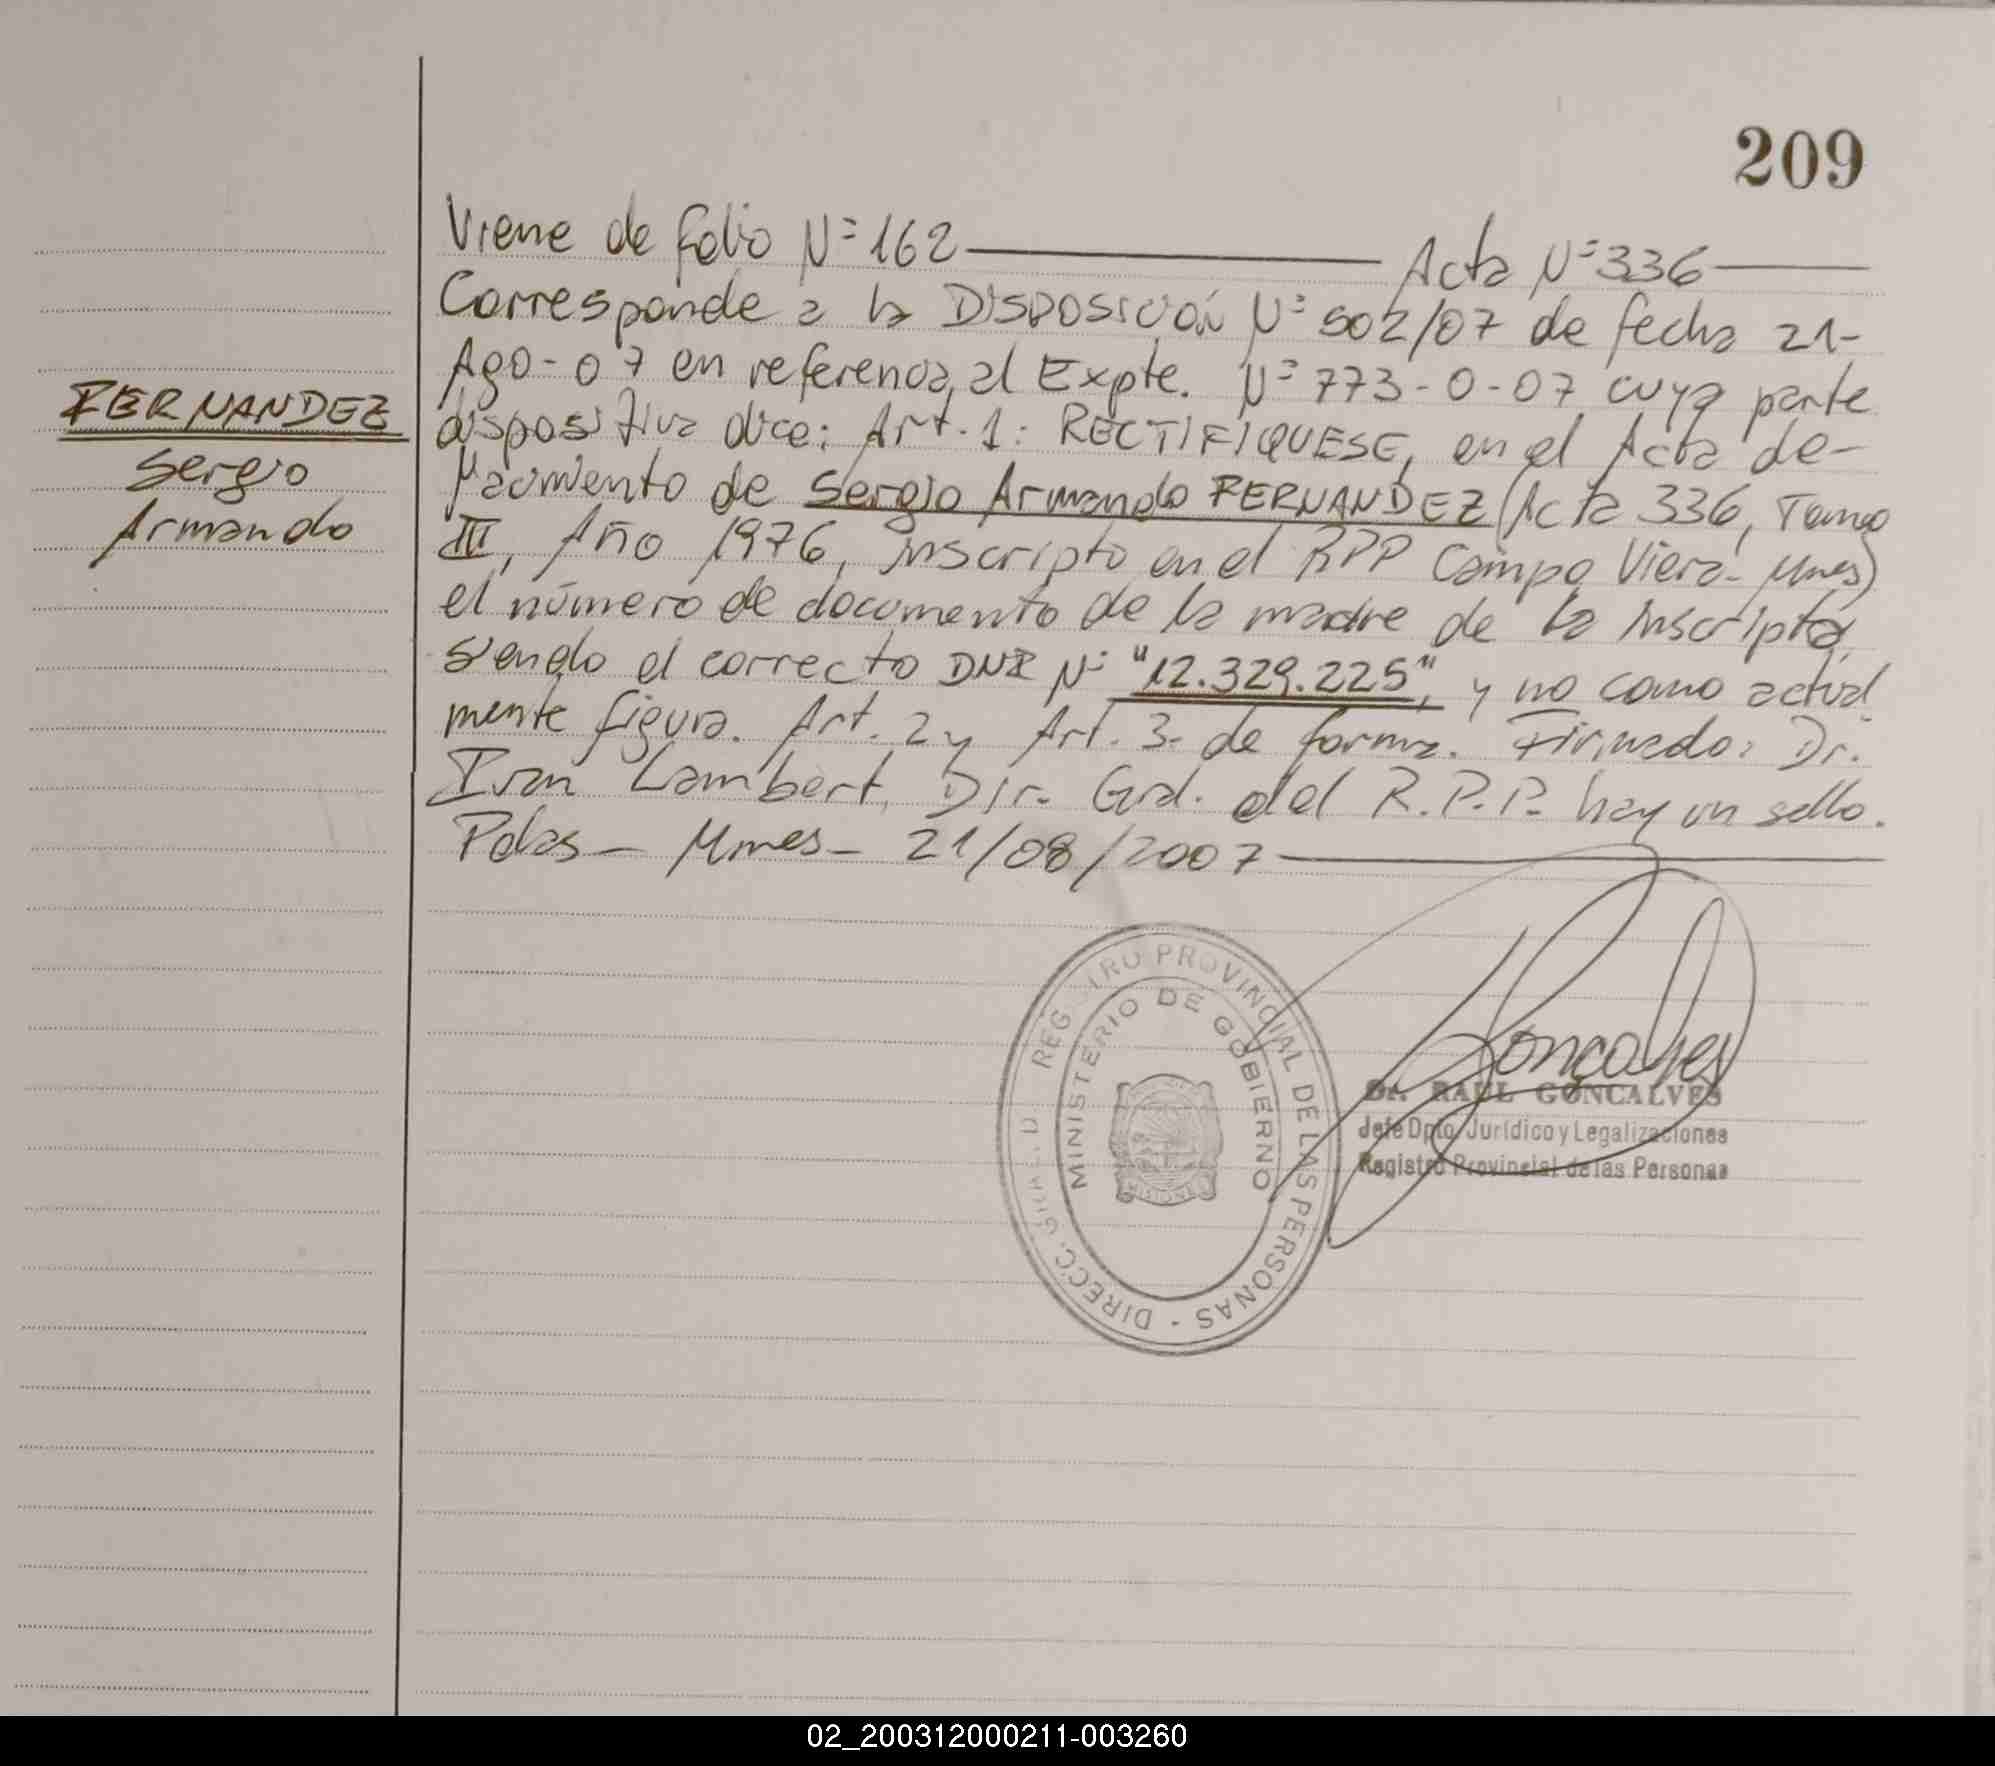 209
Viene de folio Nº 162 — Acta Nº 336 —
Corresponde a la Disposición Nº 502/07 de fecha 21-
Ago-07 en referencia, al Expte. Nº 773-0-07 cuya parte
FERNANDEZ
Sergio
Armando
dispositiva dice: Art. 1: RECTIFIQUESE, en el Acta de-
Nacimiento de Sergio Armando FERNANDEZ (Acta 336, Tomo
III, Año 1976, inscripto en el RPP Campo Viera- Mnes)
el número de documento de la madre de la inscripta,
siendo el correcto DNI Nº "12.329.225", y no como actual
mente figura. Art. 2 y Art. 3- de forma. Firmado: Dr.
Ivan Lambert, Dir. Gral. del R.P.P. hay un sello.
Pdas - Mnes - 21/08/2007 —
DIRECC. GRAL. D REGISTRO PROVINCIAL DE LAS PERSONAS -
MINISTERIO DE GOBIERNO
MISIONES
Goncalves
Dr. RAUL GONCALVES
Jefe Dpto. Jurídico y Legalizaciones
Registro Provincial de las Personas
02_200312000211-003260